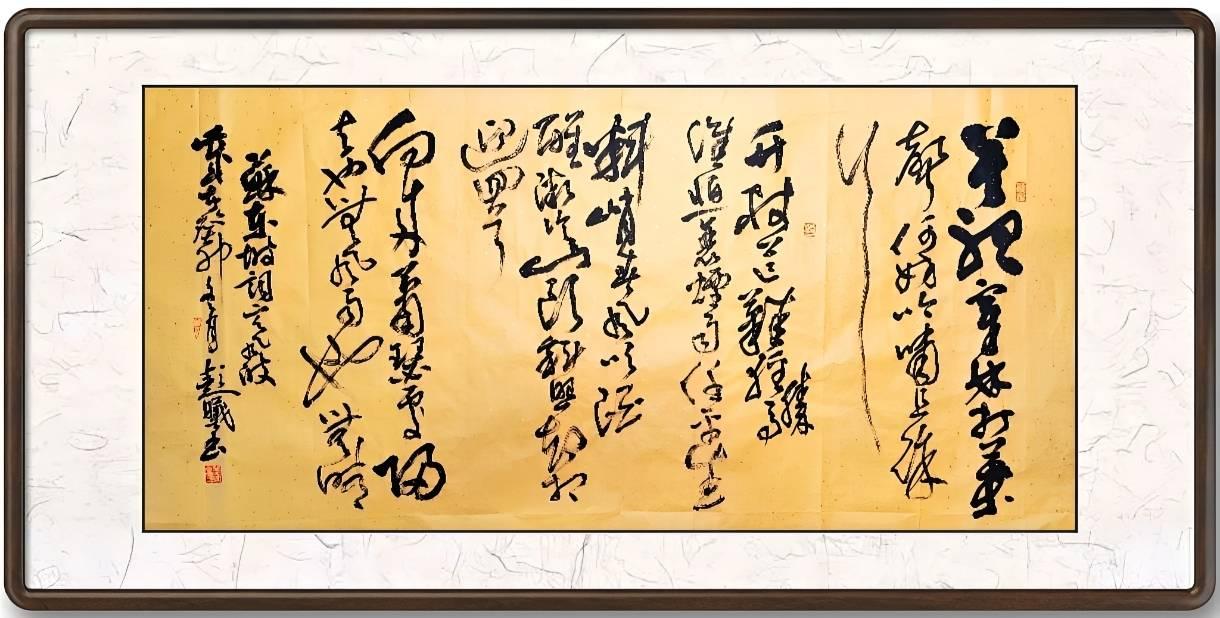 莫聽穿林打葉
聲何妨吟嘯且徐
行
竹杖芒鞋輕勝馬
誰怕一蓑煙雨任平生
料峭春風吹酒
醒微冷山頭斜照却相
迎回首
向來蕭瑟處歸
去也無風雨也無晴
蘇東坡詞定風波
歲在癸卯冬月彭曦書